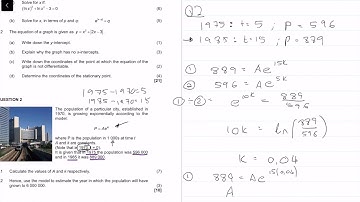 Solve for x if:
(ln x)² + ln x² - 3 = 0 (6)
Solve for x, in terms of p and q: (5)
2 The equation of a graph is given as y = x² + |2x - 3|
(a) Write down the y-intercept. (1)
(b) Explain why the graph has no x-intercepts. (2)
(c) Write down the coordinates of the point at which the equation of the graph is not differentiable. (2)
(d) Determine the coordinates of the stationary point. (4)
[21]
1975-1970=5
1985-1970=15
QUESTION 2
The population of a particular city, established in 1970, is growing exponentially according to the model:
where P is the population in 1 000s at time t
A and k are constants.
(Note that in 1970, t = 0)
It is given that in 1975 the population was 596 000 and in 1985 it was 889 000
1 Calculate the values of A and k respectively. (7)
2 Hence, use the model to estimate the year in which the population will have grown to 6 000 000. (3)
[10]
Q2
1975: t=5 ; P = 596
→ 1985: t=15 ; P = 889
① 889 = Ae^15k
② 596 = Ae^5k
① ÷ ② = e^10k = 889/596
10k = ln(889/596)
K = 0,04
① 889 = Ae^15(0,04)
A